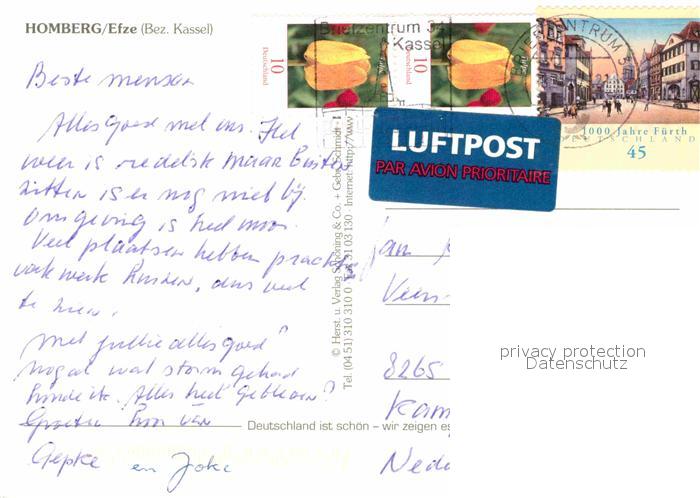 HOMBERG/Efze (Bez. Kassel)
Beste mensen
Alles Goed met ons. Het
weer is redelijk maar Buiten
zitten is er nog niet bij.
Omgeving is heel mooi.
Veel plaatsen hebben prachtig
vakwerk huizen, dus veel
te zien.
Met jullie alles goed?
nogal wat storm gehad
hoorde ik. Alles heel gebleven?
Groeten hoor van
Gepke en Joke
Briefzentrum 34
Kassel
10
Deutschland
10
Deutschland
BRIEFZENTRUM 3
1000 Jahre Fürth
DEUTSCHLAND
45
LUFTPOST
PAR AVION PRIORITAIRE
© Herst. u. Verlag Schöning & Co. + Gebr. Schmidt
Tel. (04 51) 310 310 0 03 130 - Internet: http://www
Jan
Veen
8265
Kam
Nede
privacy protection
Datenschutz
Deutschland ist schön – wir zeigen es